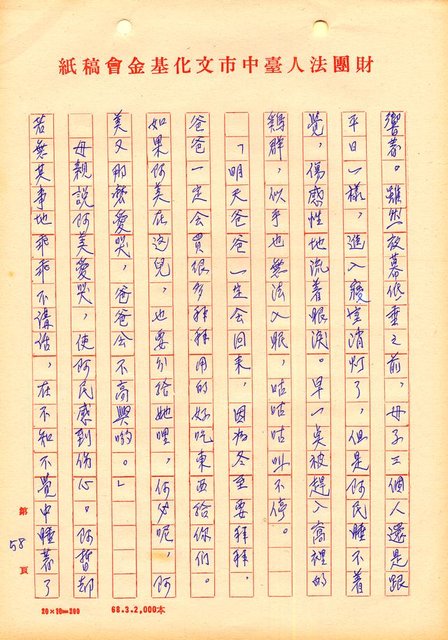 財團法人臺中市文化基金會稿紙
響著。雖然夜幕低垂之前，母子三個人還是跟
平日一樣，進入寢室清灯了，但是阿民睡不着
覺，傷感性地流着眼淚。早一臭被趕入窩裡的
鷄群，似乎也無法入眠，咕咕咕叫不停。
「明天爸爸一定会回來，因為冬至要拜拜，
爸爸一定会買很多拜拜用的好吃東西給你們。
如果阿美在這兒，也要分給她哩，何必呢，阿
美又那麼愛哭，爸爸会不高興喲。」
母親說阿美愛哭，使阿民感到伤心。阿哲却
若無其事地乖乖不講話，在不知不覺中睡着了
第58頁
20×10=200
68.3.2,000本